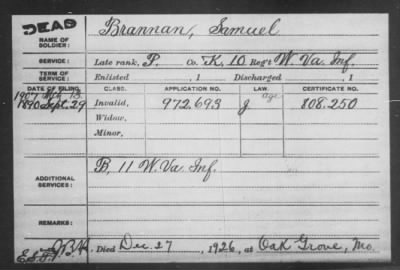 DEAD
NAME OF SOLDIER: Brannan, Samuel
SERVICE: Late rank, P. Co. K, 10 Reg't W. Va. Inf.
TERM OF SERVICE: Enlisted , 1 Discharged , 1
DATE OF FILING. CLASS. APPLICATION NO. LAW. CERTIFICATE NO.
1907 Feb 13 Age
1890 Sept. 29 Invalid, 972.693 J 808.250
Widow,
Minor,
ADDITIONAL SERVICES: B, 11 W. Va. Inf.
REMARKS:
Died Dec. 27, 1926, at Oak Grove, Mo.